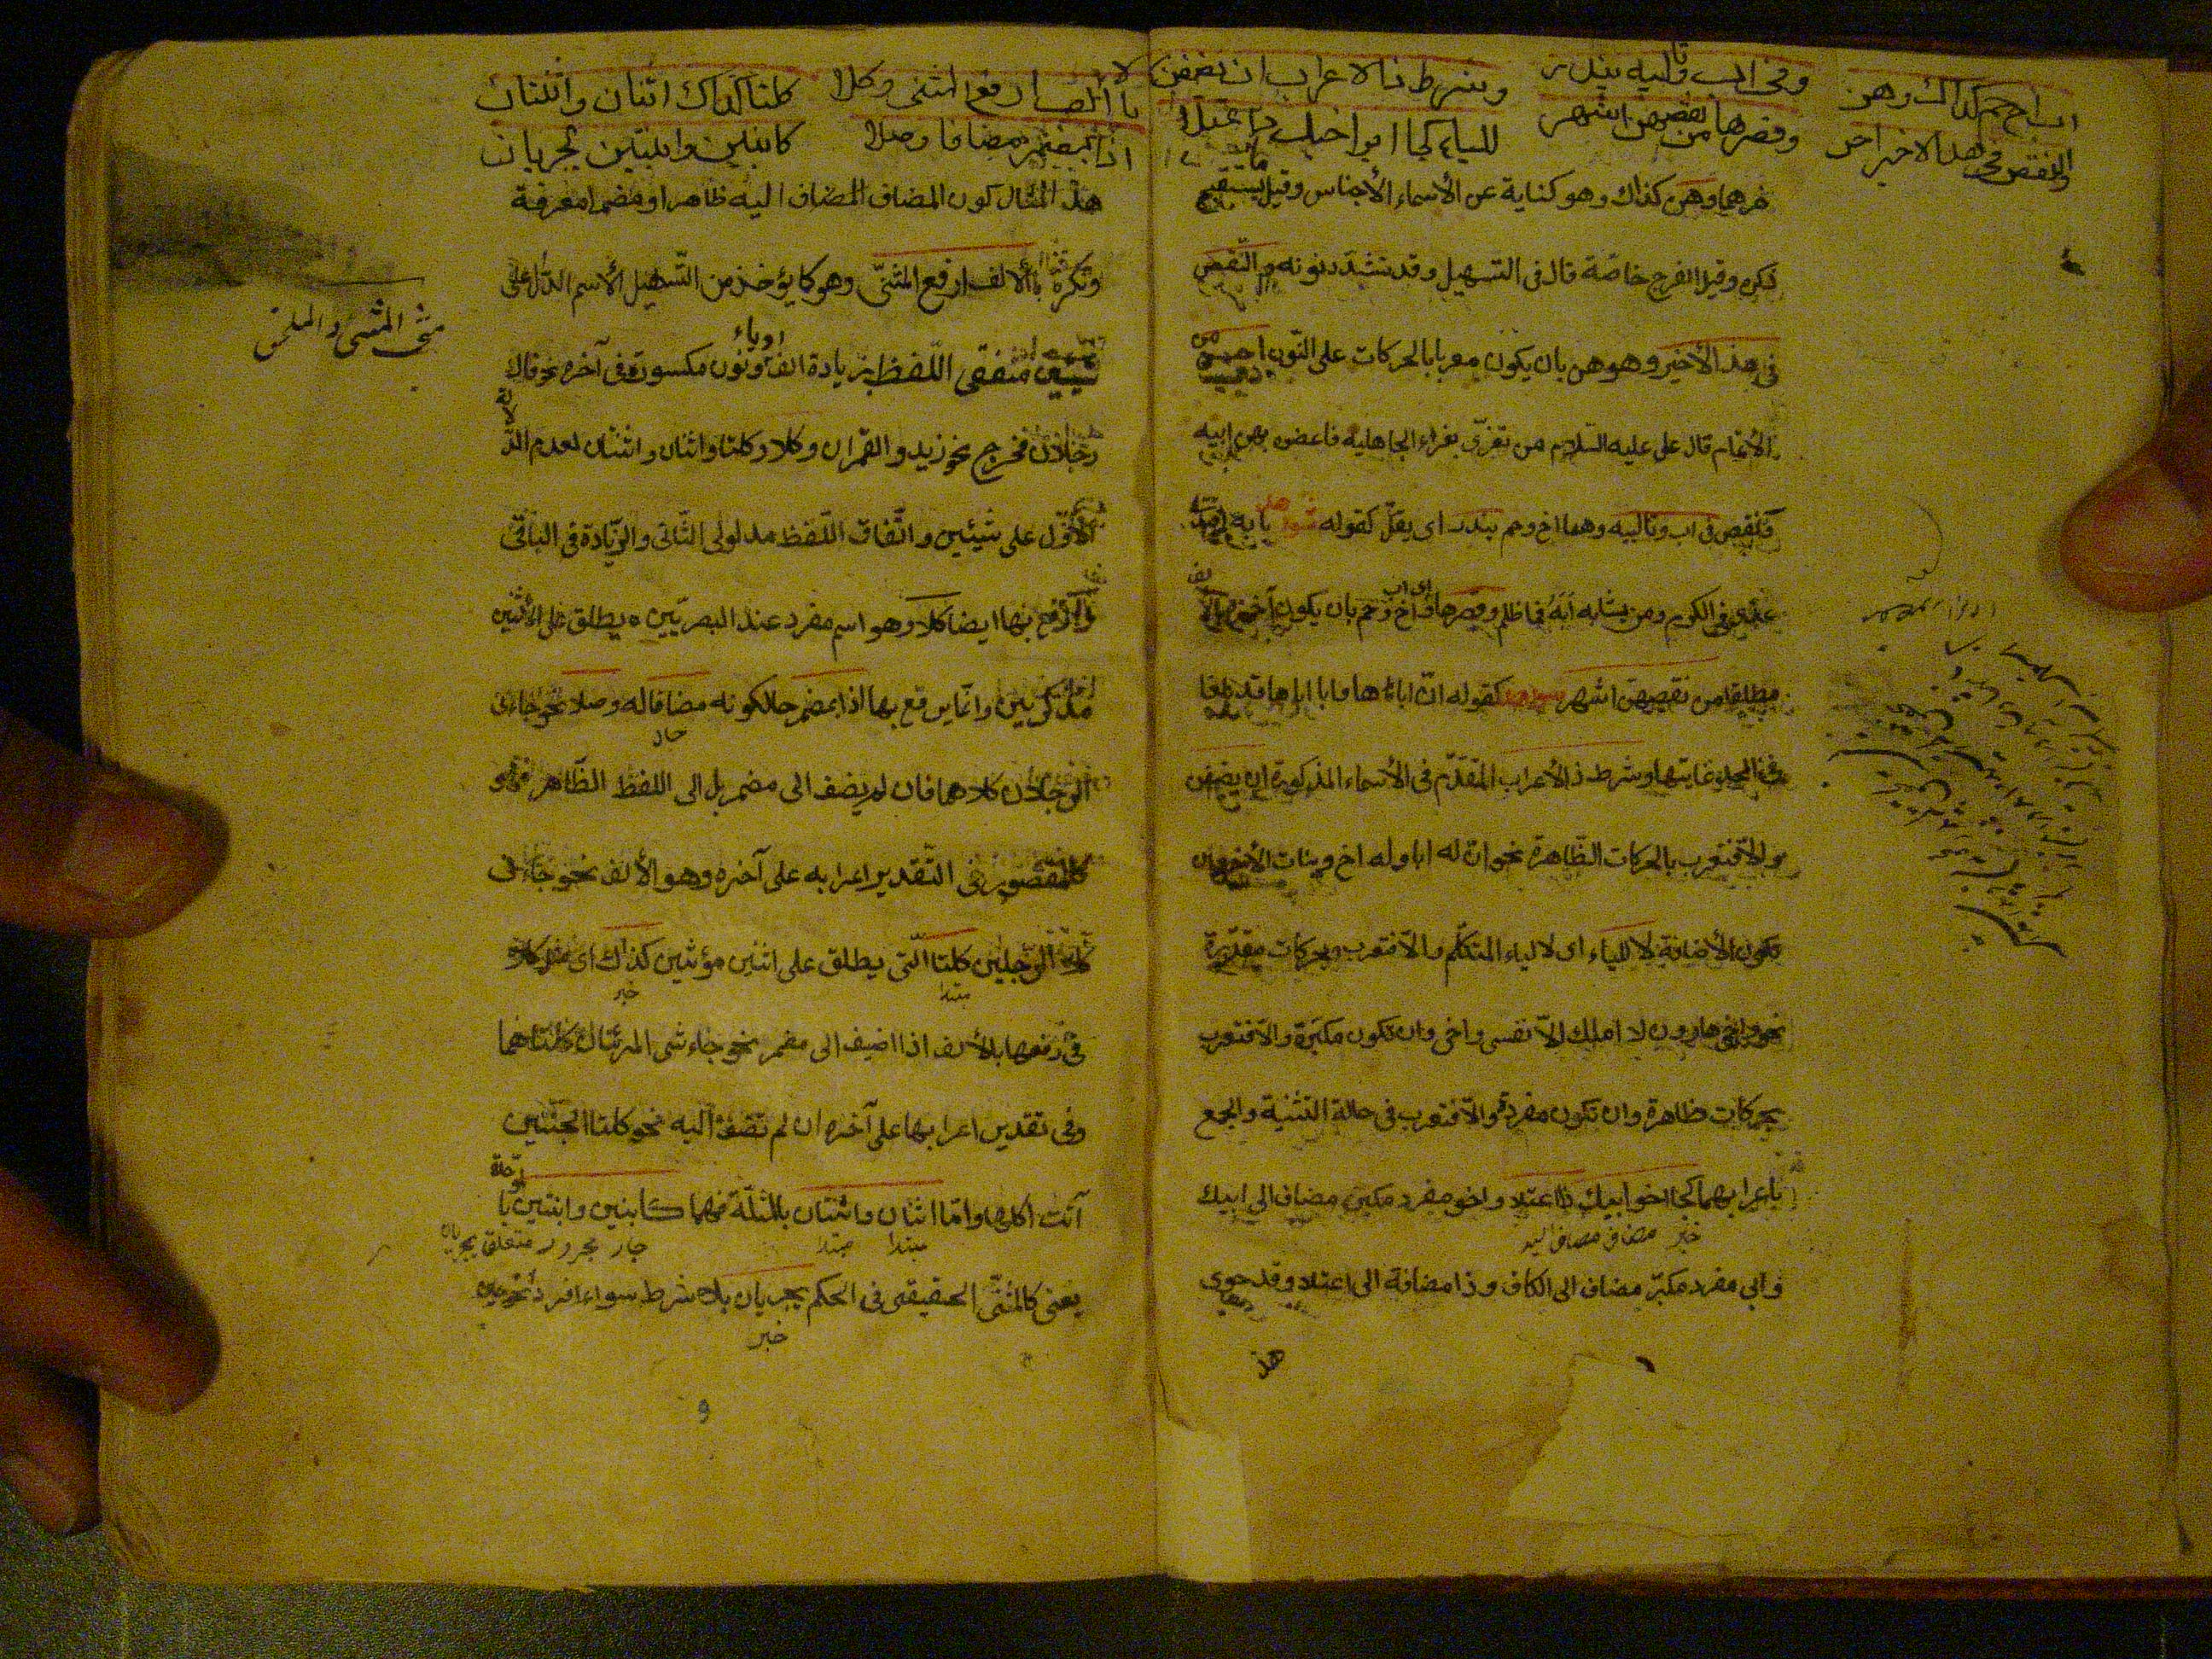 اب اخ حم كذاك وهن
وفي اب وتاليه يندر
وشرط ذا الاعراب ان يضفن لا
والنقص في هذا الاخير احسن
وقصرها من نقصهن اشهر
للياء كجا اخو ابيك ذا اعتلا
غيرهما وهن كذاك وهو كناية عن الأسماء الأجناس وقيل يستقبح
ذكره وقيل الفرج خاصّة قال فى التسهيل وقد تشدّد نونه والنّقص
فى هذا الأخير وهو هن بان يكون معربا بالحركات على النّون احسن من
الأتمام قال على عليه السّلام من تعزّى بعزاء الجاهلية فاعضوه بهن ابيه
والنقص فى اب وتالييه وهما اخ وحم يندر اى يقلّ كقوله بابه اقتدى
عدى فى الكرم ومن يشابه ابه فما ظلم وقصرها اى اب واخ وحم بان يكون آخرها بالألف
مطلقا من نقصهنّ اشهر كقوله انّ اباها وابا اباها قد بلغا
فى المجد غايتاها وشرط ذا الأعراب المتقدّم فى الأسماء المذكورة ان يضفن
والّا فتعرب بالحركات الظّاهرة نحو ان له ابا وله اخ وبنات الأخ وان
تكون الأضافة لا للياء اى لا لياء المتكلّم والّا فتعرب بحركات مقدّرة
نحو واخى هارون لا املك الّا نفسى واخى وان تكون مكبّرة والّا فتعرب
بحركات ظاهرة وان تكون مفردة والّا فتعرب فى حالة التثنية والجمع
باعرابهما كجا اخو ابيك ذا اعتلا واخو مفرد مكبّر مضاف الى ابيك
خبر مضاف مضاف اليه
وابى مفرد مكبّر مضاف الى الكاف وذا مضافة الى اعتلا وقد حوى
هذ
بالالف ارفع المثنى وكلا
كلتا كذاك اثنان واثنتان
اذا بمضمر مضافا وصلا
كابنين وابنتين يجريان
هذا المثال كون المضاف المضاف اليه ظاهرا ومضمرا معرفة
ونكرة بالألف ارفع المثنّى وهو كما يؤخذ من التّسهيل الأسم الدّال على
او ياء
شيئين متفقى اللّفظ بزيادة الف ونون مكسورة فى آخره نحو قال
مثنى المثنى والملحق
رجلان فخرج نحو زيد والقمران وكلا وكلتا واثنان واثنتان لعدم الدّلالة
الأوّل على شيئين واتّفاق اللّفظ مدلولى الثّانى والزّيادة فى الباقى
وارفع بها ايضا كلا وهو اسم مفرد عند البصريّين يطلق على اثنين
مذكرين وانّما يرفع بها اذا بمضمر حالكونه مضافا له وصلا نحو جاءنى
حال
الرّجلان كلاهما فان لم يضف الى مضمر بل الى اللفظ الظّاهر فهو
كالمقصور فى التّقدير اعرابه على آخره وهو الألف نحو جاءنى
كلا الرّجلين كلتا الّتى يطلق على اثنين مؤنثين كذاك اى مثل كلا
مبتدا خبر
فى رفعها بالألف اذا اضيف الى مضمر نحو جاءتنى المرئتان كلتاهما
وفى تقدير اعرابها على آخره ان لم تضف اليه نحو كلتا الجنّتين
آتت اكلها وامّا اثنان واثنتان بالمثلّثة فهما كابنين وابنتين بالموحّدة
مبتدا مبتدا جار مجرور متعلق بيجريان
يعنى كالمثنّى الحقيقى فى الحكم يجريان بلا شرط سواء افرد نحو حين
خبر
9